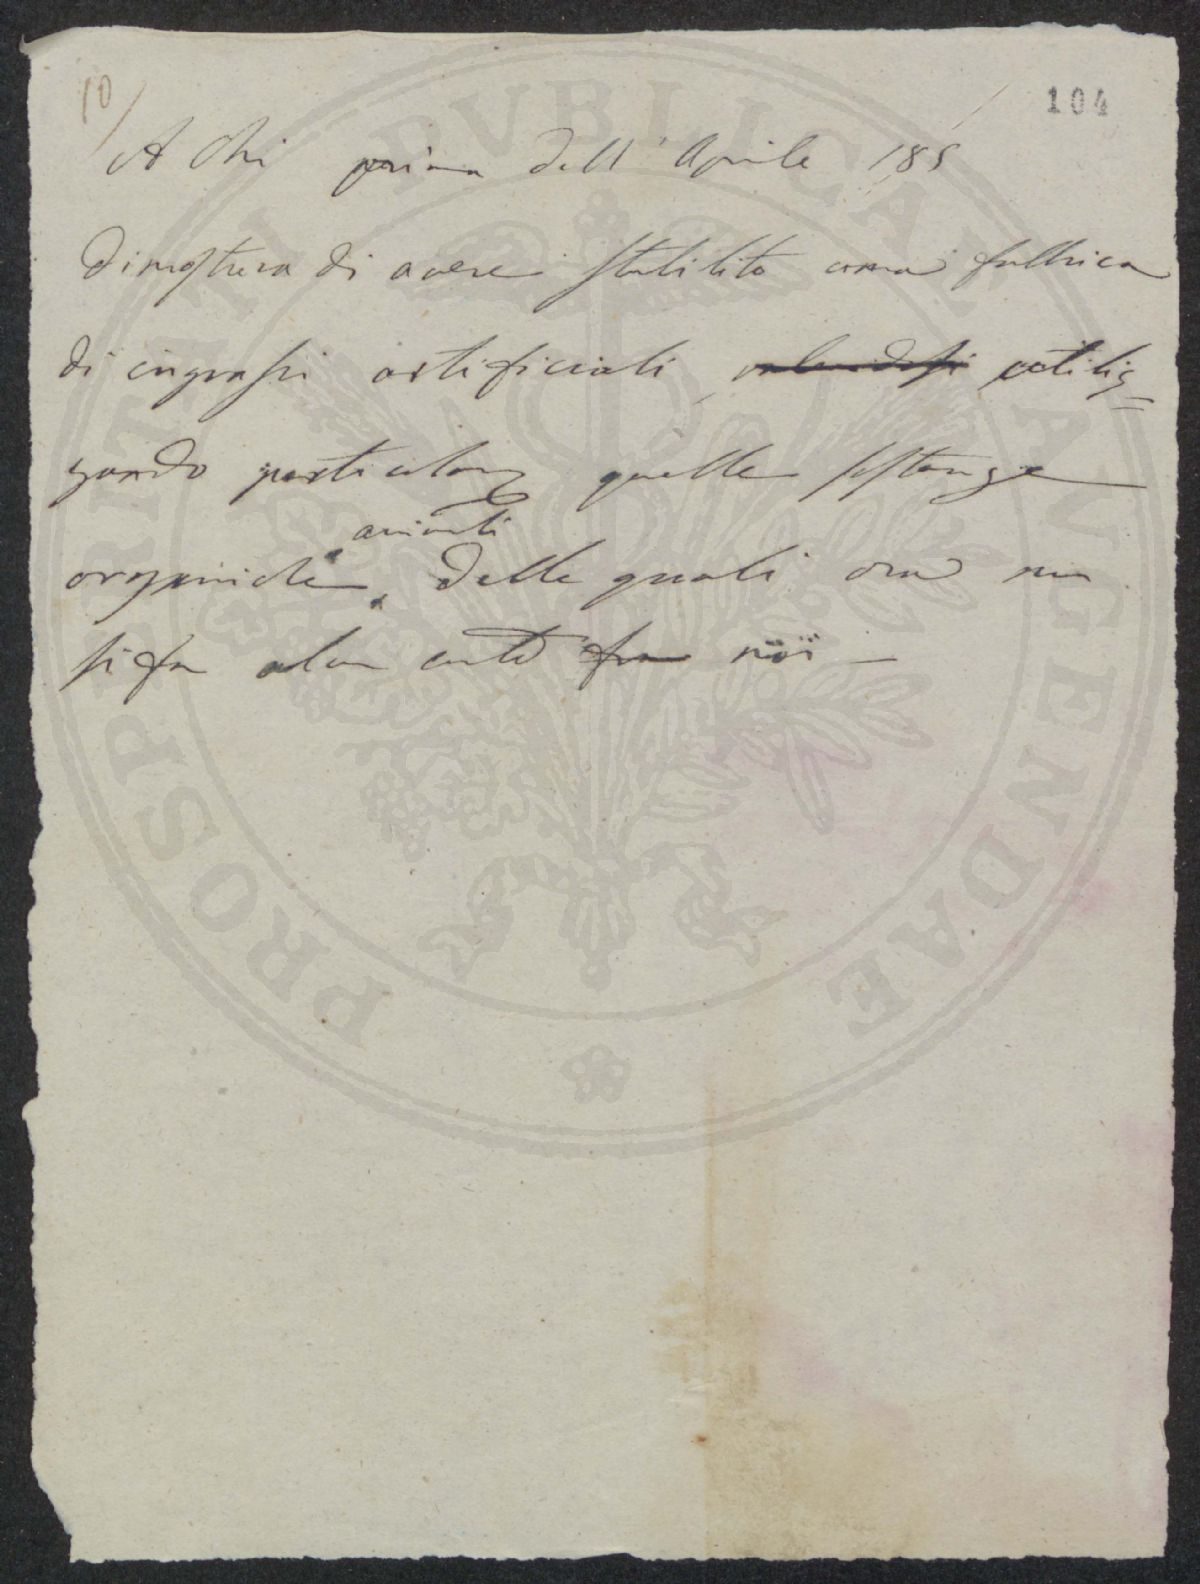 10/
104
A chi prima dell'Aprile 185
dimostrera di avere stabilito una fabbrica
di ingrassi artificiali valendosi utiliz=
zando particolar quelle sostanze
animali
organiche delle quali ora non
si fa alcun conto fra noi —
PROSPERITATI PVBLICAE AVGENDAE